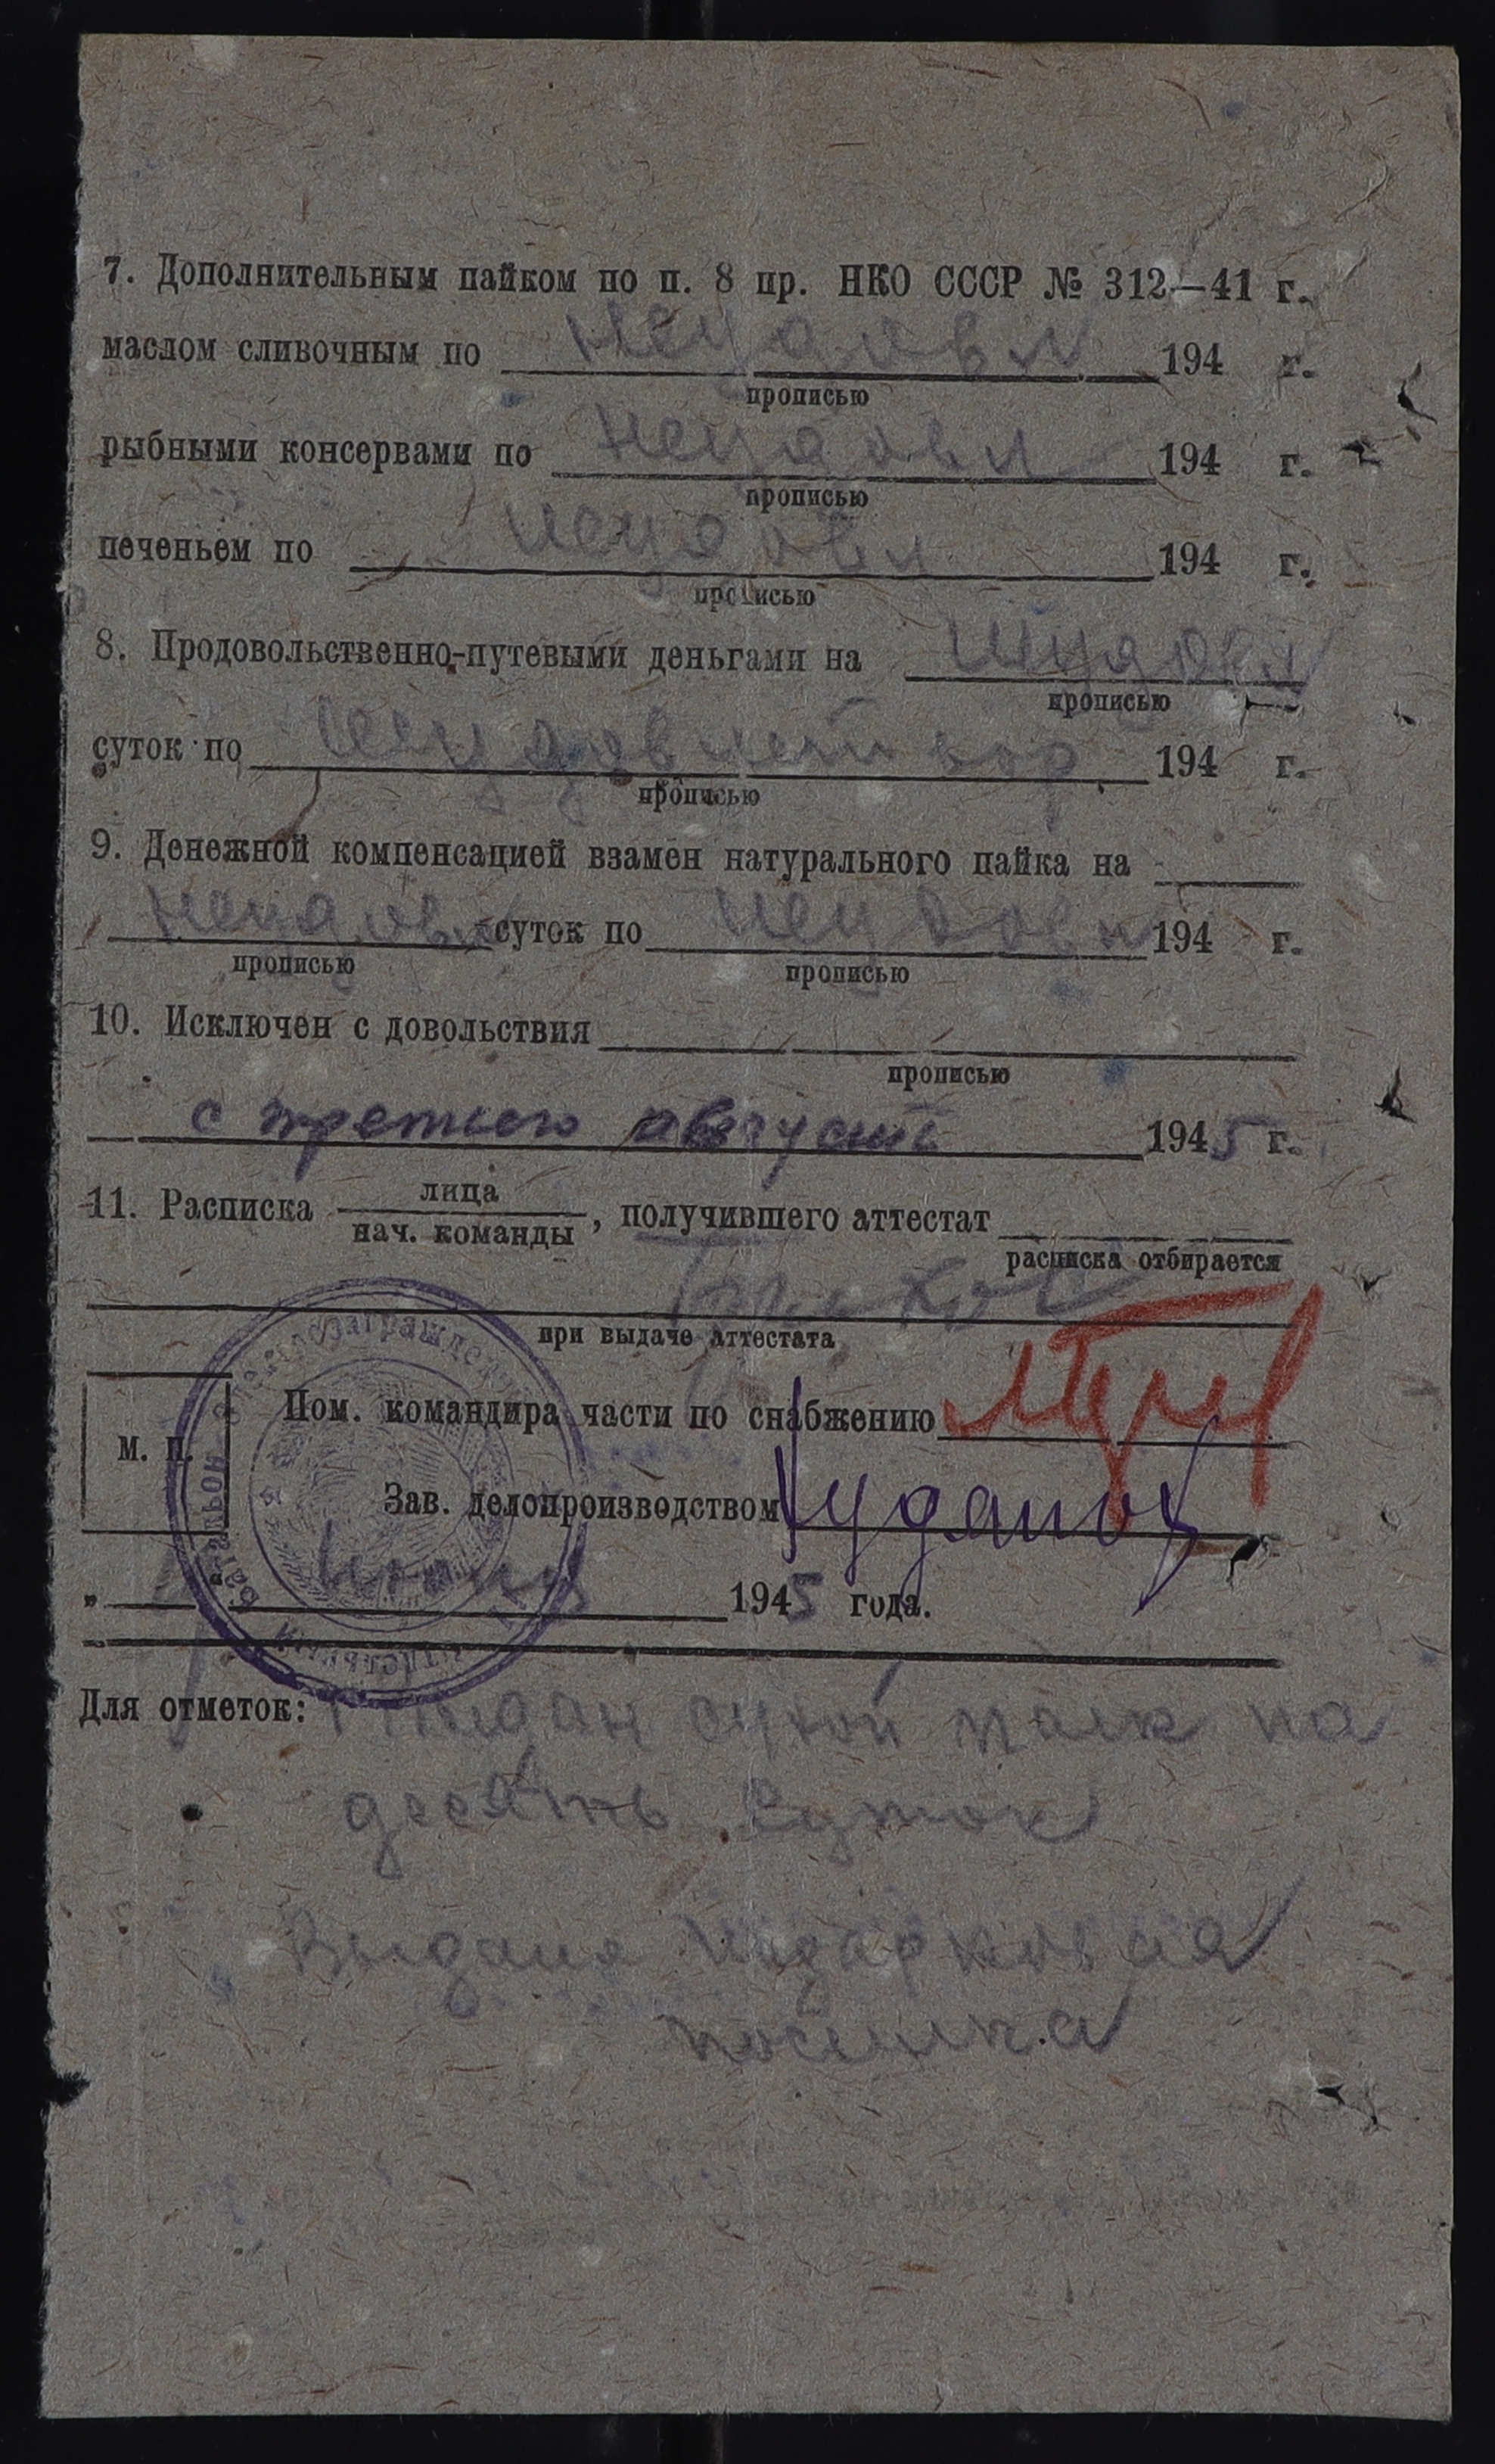 7. Дополнительным пайком по п. 8 пр. НКО СССР № 312—41 г.
маслом сливочным по неудовл 194 г.
прописью
рыбными консервами по неудовл 194 г.
прописью
печеньем по неудовл 194 г.
прописью
8. Продовольственно-путевыми деньгами на неудовл
прописью
суток по неудовлетвор 194 г.
прописью
9. Денежной компенсацией взамен натурального пайка на
неудовл суток по неудовл 194 г.
прописью прописью
10. Исключен с довольствия
прописью
с третьего августа 1945 г.
11. Расписка лица
нач. команды, получившего аттестат
расписка отбирается
при выдаче аттестата
Пом. командира части по снабжению
М. П.
Зав. делопроизводством
" 1945 года.
Для отметок: Выдан сухой паек на
десять суток
Выдана подарковая
посылка